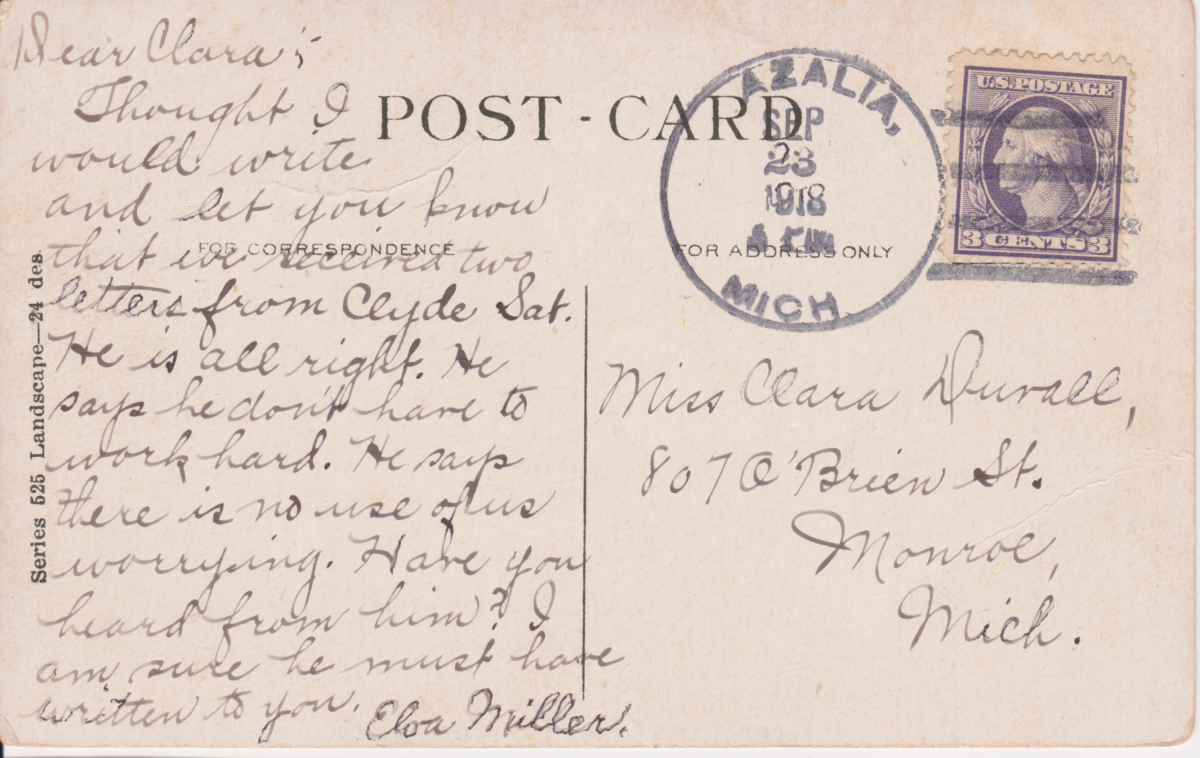 Dear Clara;
Thought I
would write
and let you know
that we received two
letters from Clyde Sat.
He is all right. He
says he don't have to
work hard. He says
there is no use of us
worrying. Have you
heard from him? I
am sure he must have
written to you.
Elva Miller.
POST-CARD
FOR CORRESPONDENCE
FOR ADDRESS ONLY
Series 525 Landscape—24 des.
AZALIA,
SEP
23
1918
MICH.
U.S. POSTAGE
3 CENTS 3
Miss Clara Duvall,
807 O'Brien St.
Monroe,
Mich.